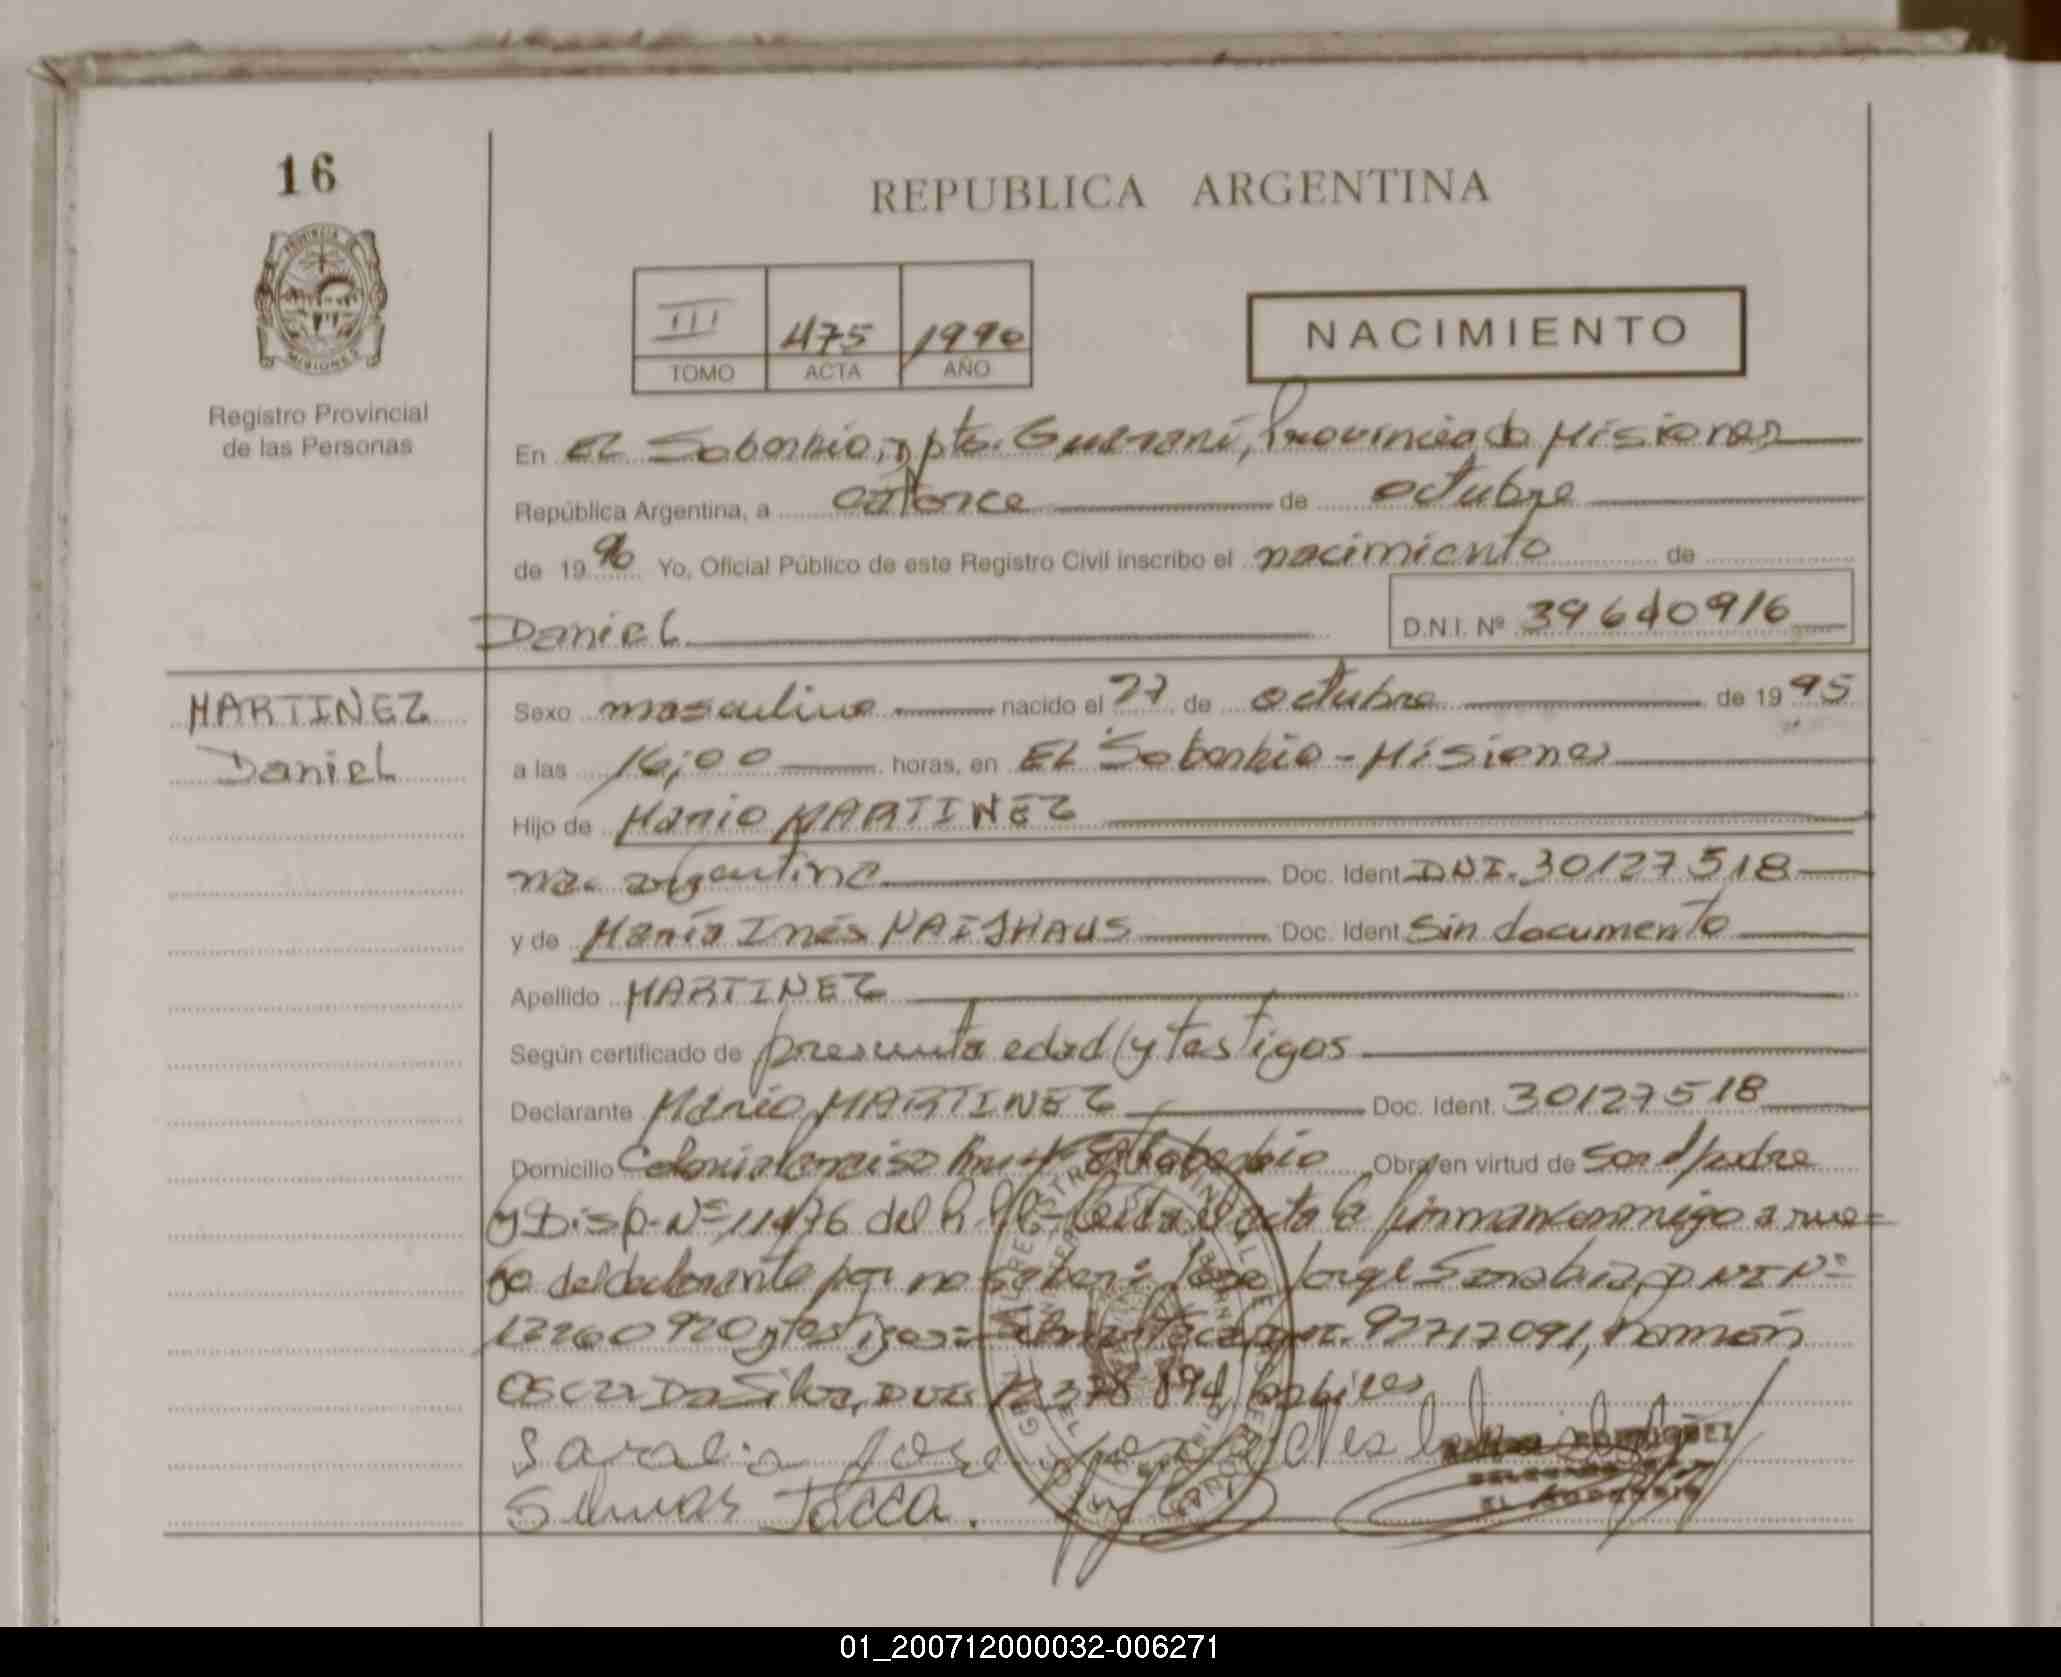 16
REPUBLICA ARGENTINA
PROVINCIA DE
MISIONES
III 475 1996
TOMO ACTA AÑO
NACIMIENTO
Registro Provincial
de las Personas
En El Soberbio, Dpto. Guaraní, Provincia de Misiones
República Argentina, a catorce de octubre
de 1996 Yo, Oficial Público de este Registro Civil inscribo el nacimiento de
Daniel D.N.I. Nº 39640916
MARTINEZ
Daniel
Sexo masculino nacido el 27 de octubre de 1995
a las 16,00 horas, en El Soberbio - Misiones
Hijo de Mario MARTINEZ
nac. argentina Doc. Ident DNI. 30127518
y de María Inés Doc. Ident Sin documento
Apellido MARTINEZ
Según certificado de presunta edad y testigos
Declarante Mario MARTINEZ Doc. Ident. 30127518
Domicilio Colonia El Soberbio Obra en virtud de ser el padre
y Disp. Nº del Leída el acta la firman conmigo a rue=
go del declarante por no saber: José Jorge Sanabria, DNI Nº
12260920 y testigos: 92717091, Ramón
Oscar Da Silva, DNI hábiles
José
Tacca.
EL SOBERBIO
01_200712000032-006271